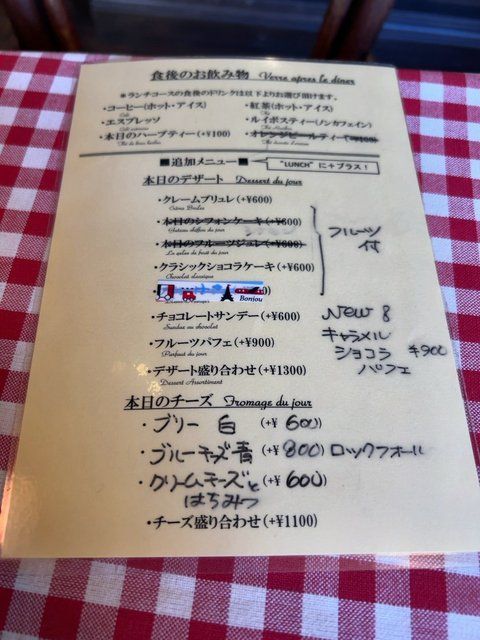 食後のお飲み物 Verre apres le diner
※ランチコースの食後のドリンクは以下よりお選び頂けます。
・コーヒー(ホット・アイス) ・紅茶(ホット・アイス)
・エスプレッソ ・ルイボスティー(ノンカフェイン)
・本日のハーブティー(+¥100) ・オレンジピールティー(+¥100)
■追加メニュー■ "LUNCH" に+プラス!
本日のデザート Dessert du jour
・クレームブリュレ(+¥600)
・本日のシフォンケーキ(+¥600)
・本日のフルーツジュレ(+¥600)
・クラシックショコラケーキ(+¥600)
Chocolat classique
フルーツ
付
Bonjou
・チョコレートサンデー(+¥600)
Sundae au chocolat
・フルーツパフェ(+¥900)
Parfait du jour
・デザート盛り合わせ(+¥1300)
Dessert Assortiment
New
キャラメル
ショコラ ¥900
パフェ
本日のチーズ Fromage du jour
・ブリー 白 (+¥ 600)
・ブルーチーズ 青 (+¥ 800) ロックフォール
・クリームチーズと (+¥ 600)
はちみつ
・チーズ盛り合わせ(+¥1100)